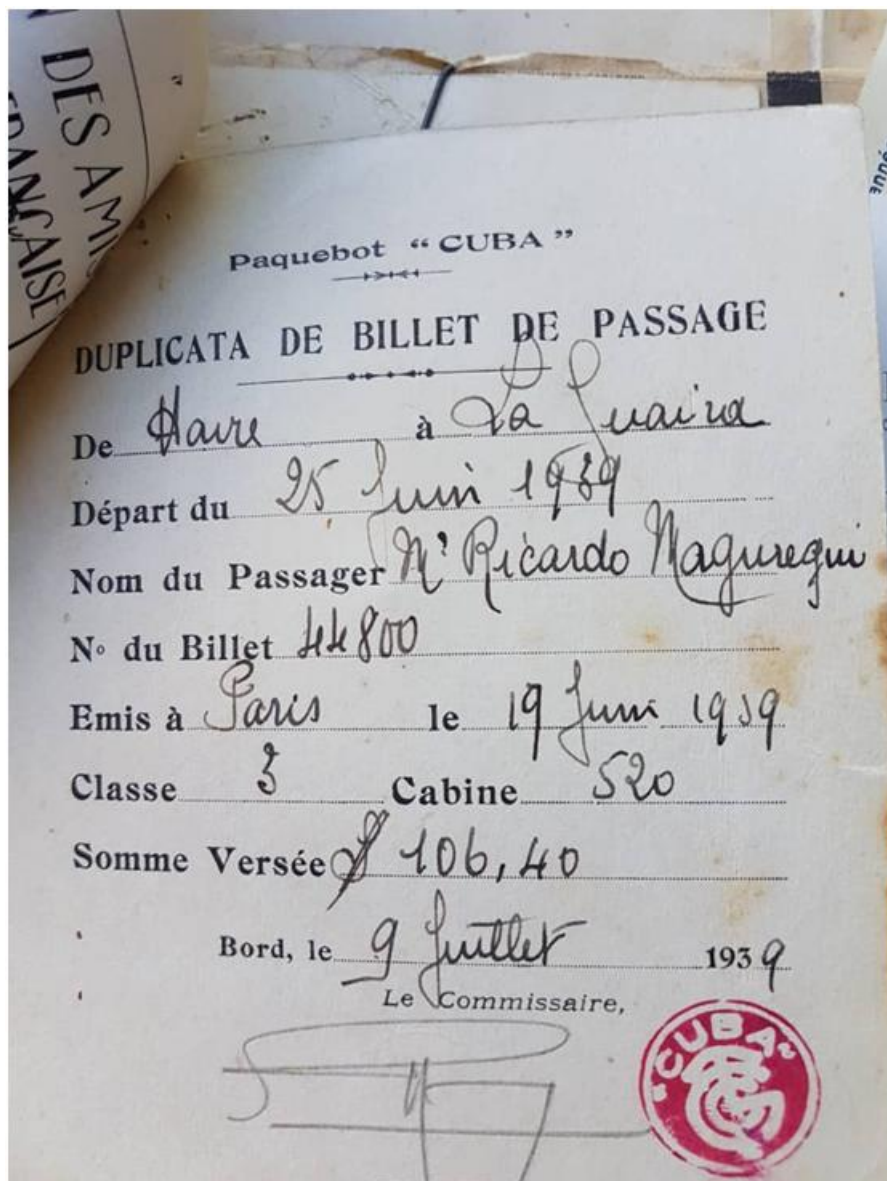 DES AMI
FRANÇAISE
Paquebot “CUBA”
DUPLICATA DE BILLET DE PASSAGE
De Havre à La Guaira
Départ du 25 Juin 1939
Nom du Passager Mr Ricardo Maguregui
No du Billet 44800
Emis à Paris le 19 Juin 1939
Classe 3 Cabine 520
Somme Versée $ 106,40
Bord, le 9 Juillet 1939
Le Commissaire,
"CUBA"